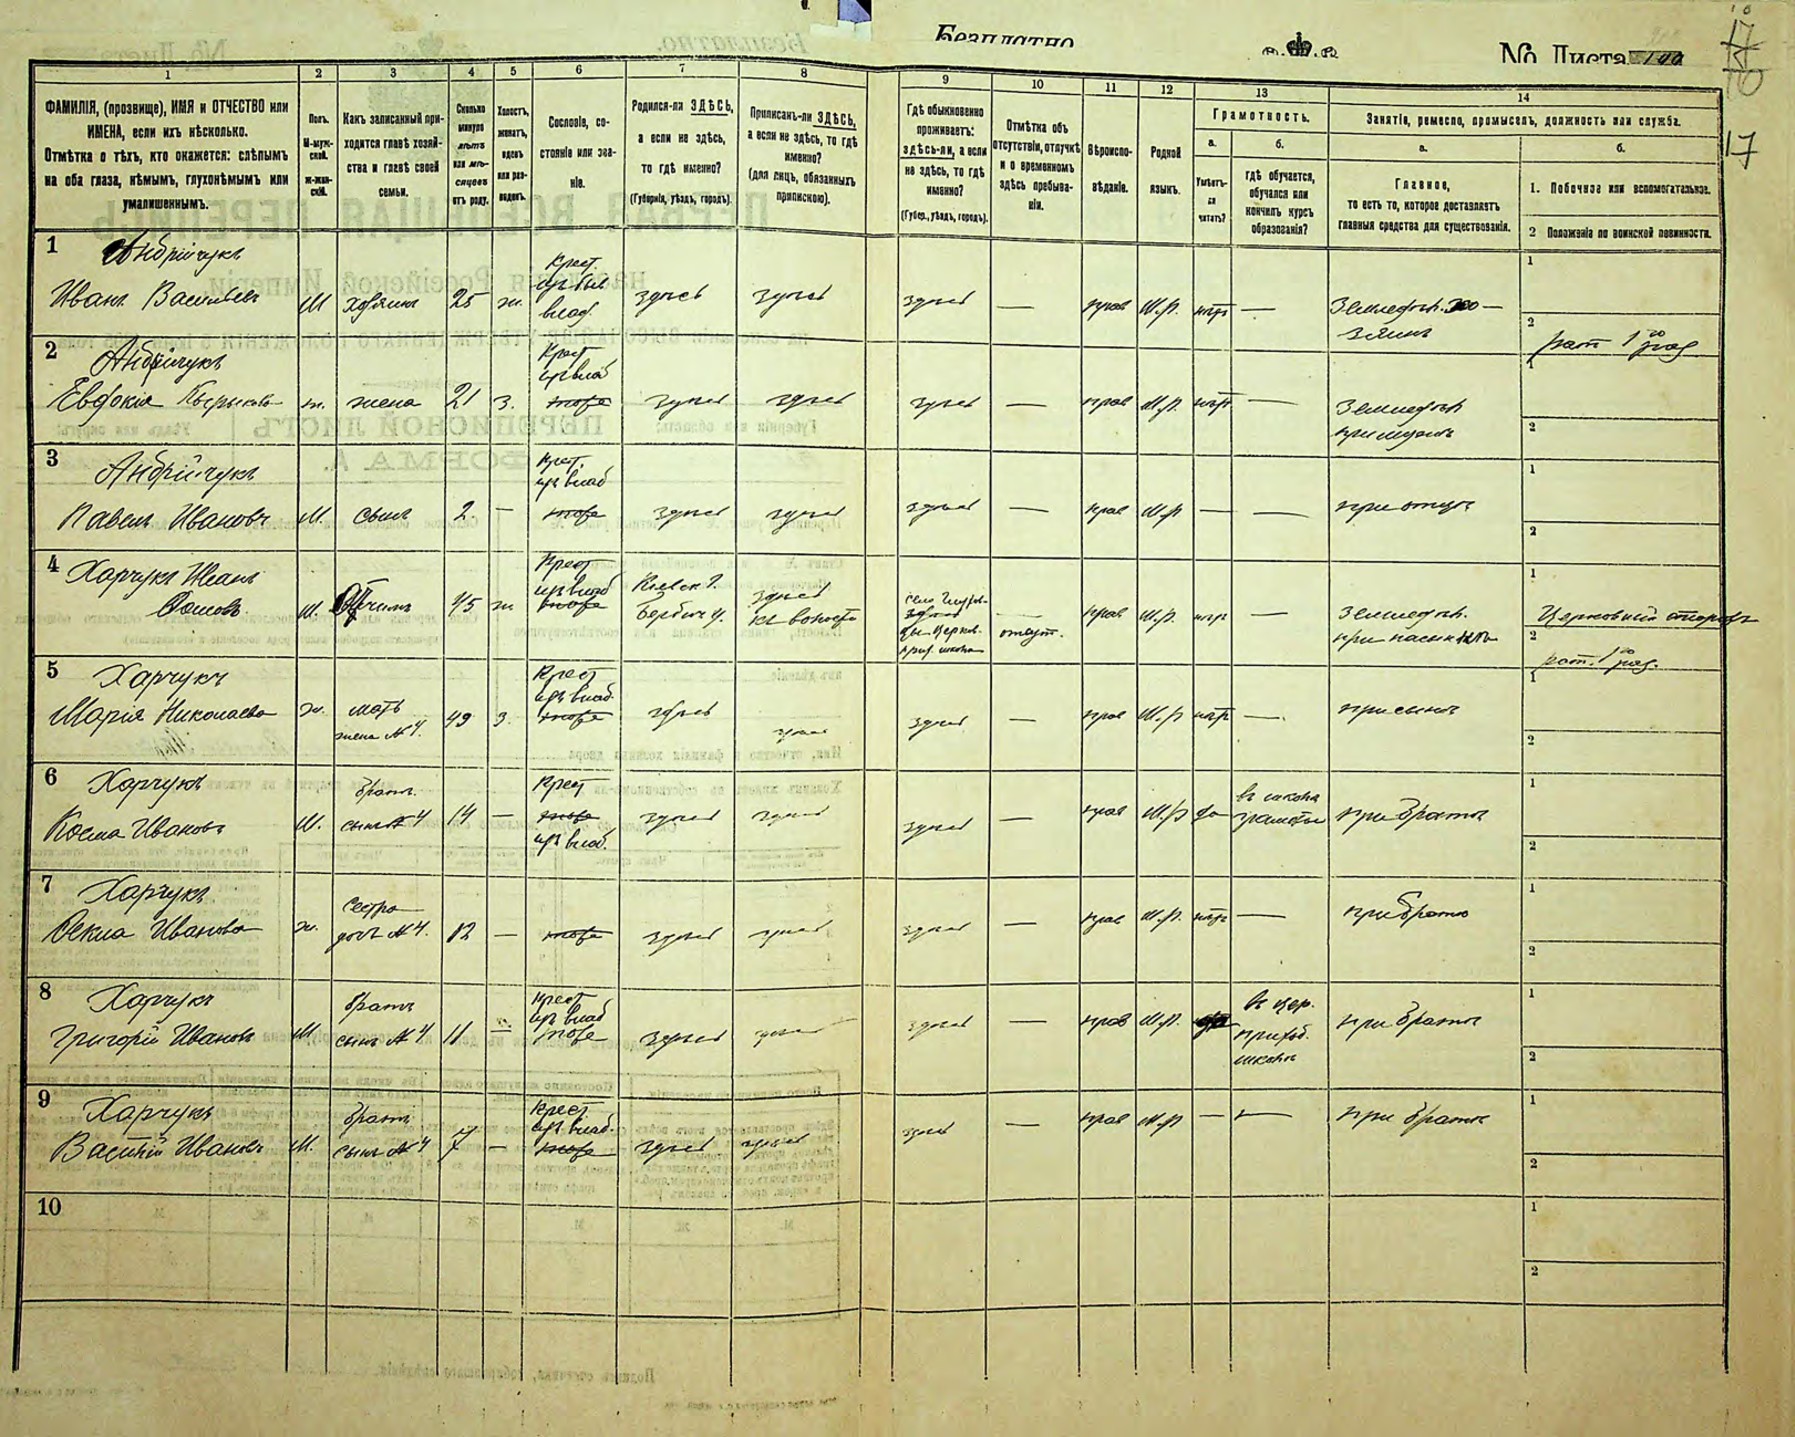 Безплатно
No Листа
17
17
1
2
3
4
5
6
7
8
9
10
11
12
13
14
ФАМИЛІЯ, (прозвище), ИМЯ и ОТЧЕСТВО или
ИМЕНА, если ихъ нѣсколько.
Отмѣтка о тѣхъ, кто окажется: слѣпымъ
на оба глаза, нѣмымъ, глухонѣмымъ или
умалишеннымъ.
Полъ.
М-муж-
ской.
ж-жен-
скій.
Какъ записанный при-
ходится главѣ хозяй-
ства и главѣ своей
семьи.
Сколько
минуло
лѣтъ
или мѣ-
сяцевъ
отъ роду.
Холостъ,
женатъ,
вдовъ
или раз-
веденъ.
Сословіе, со-
стояніе или зва-
ніе.
Родился-ли ЗДѢСЬ,
а если не здѣсь,
то гдѣ именно?
(Губернія, уѣздъ, городъ).
Приписанъ-ли ЗДѢСЬ,
а если не здѣсь, то гдѣ
именно?
(для лицъ, обязанныхъ
припискою).
Гдѣ обыкновенно
проживаетъ:
здѣсь-ли, а если
не здѣсь, то гдѣ
именно?
(Губер., уѣздъ, городъ).
Отмѣтка объ
отсутствіи, отлучкѣ
и о временномъ
здѣсь пребыва-
ніи.
Вѣроиспо-
вѣданіе.
Родной
языкъ.
Грамотность.
а.
Умѣетъ-
ли
читать?
б.
гдѣ обучается,
обучался или
кончилъ курсъ
образованія?
Занятіе, ремесло, промыселъ, должность или служба.
а.
Главное,
то есть то, которое доставляетъ
главныя средства для существованія.
б.
1. Побочное или вспомогательное.
2 Положеніе по воинской повинности.
1
Андрійчукъ
Иванъ Васильевъ
М
хозяинъ
25
ж.
Крест.
влад.
здѣсь
здѣсь
здѣсь
—
прав
М.р.
нѣтъ
—
Земледѣл. хо-
зяинъ
1
2
рат 1 раз
2
Андрійчукъ
Евдокія
ж.
жена
21
з.
Крест
изъ влад
тоже
здѣсь
здѣсь
здѣсь
—
прав
М.р.
нѣтъ
—
Земледѣл
при мужѣ
1
2
3
Андрійчукъ
Павелъ Ивановъ
М.
сынъ
2.
—
Крест.
изъ влад
тоже
здѣсь
здѣсь
здѣсь
—
прав
М.р
—
—
при отцѣ
1
2
4
Харчукъ Иванъ
М.
Отчимъ
45
ж
Крест
изъ влад
тоже
Кіевск г.
здѣсь
отсут.
прав
М.р.
нѣтъ
—
Земледѣл.
при пасынкѣ
1
Церковный сторожъ
2
рат. 1 раз.
5
Харчукъ
Марія Николаева
ж.
мать
жена №4.
49
з.
Крест
изъ влад.
тоже
здѣсь
здѣсь
здѣсь
—
прав
М.р
нѣтъ
—
при сынѣ
1
2
6
Харчукъ
Косма Ивановъ
М.
братъ
сынъ №4
14
—
Крест
тоже
изъ влад.
здѣсь
здѣсь
здѣсь
—
прав
М.р
да
въ школѣ
грамоты
при братѣ
1
2
7
Харчукъ
Ѳекла Иванова
ж.
сестра
дочь №4.
12
—
тоже
здѣсь
здѣсь
здѣсь
—
прав
М.р.
нѣтъ
—
при братѣ
1
2
8
Харчукъ
Григорій Ивановъ
М.
братъ
сынъ №4
11
—
Крест
изъ влад
тоже
здѣсь
здѣсь
здѣсь
—
прав
М.р.
да
въ цер.
приход.
школѣ
при братѣ
1
2
9
Харчукъ
Василій Ивановъ
М.
братъ
сынъ №4
7
—
Крест
изъ влад.
тоже
здѣсь
здѣсь
здѣсь
—
прав
М.р
—
—
при братѣ
1
2
10
1
2